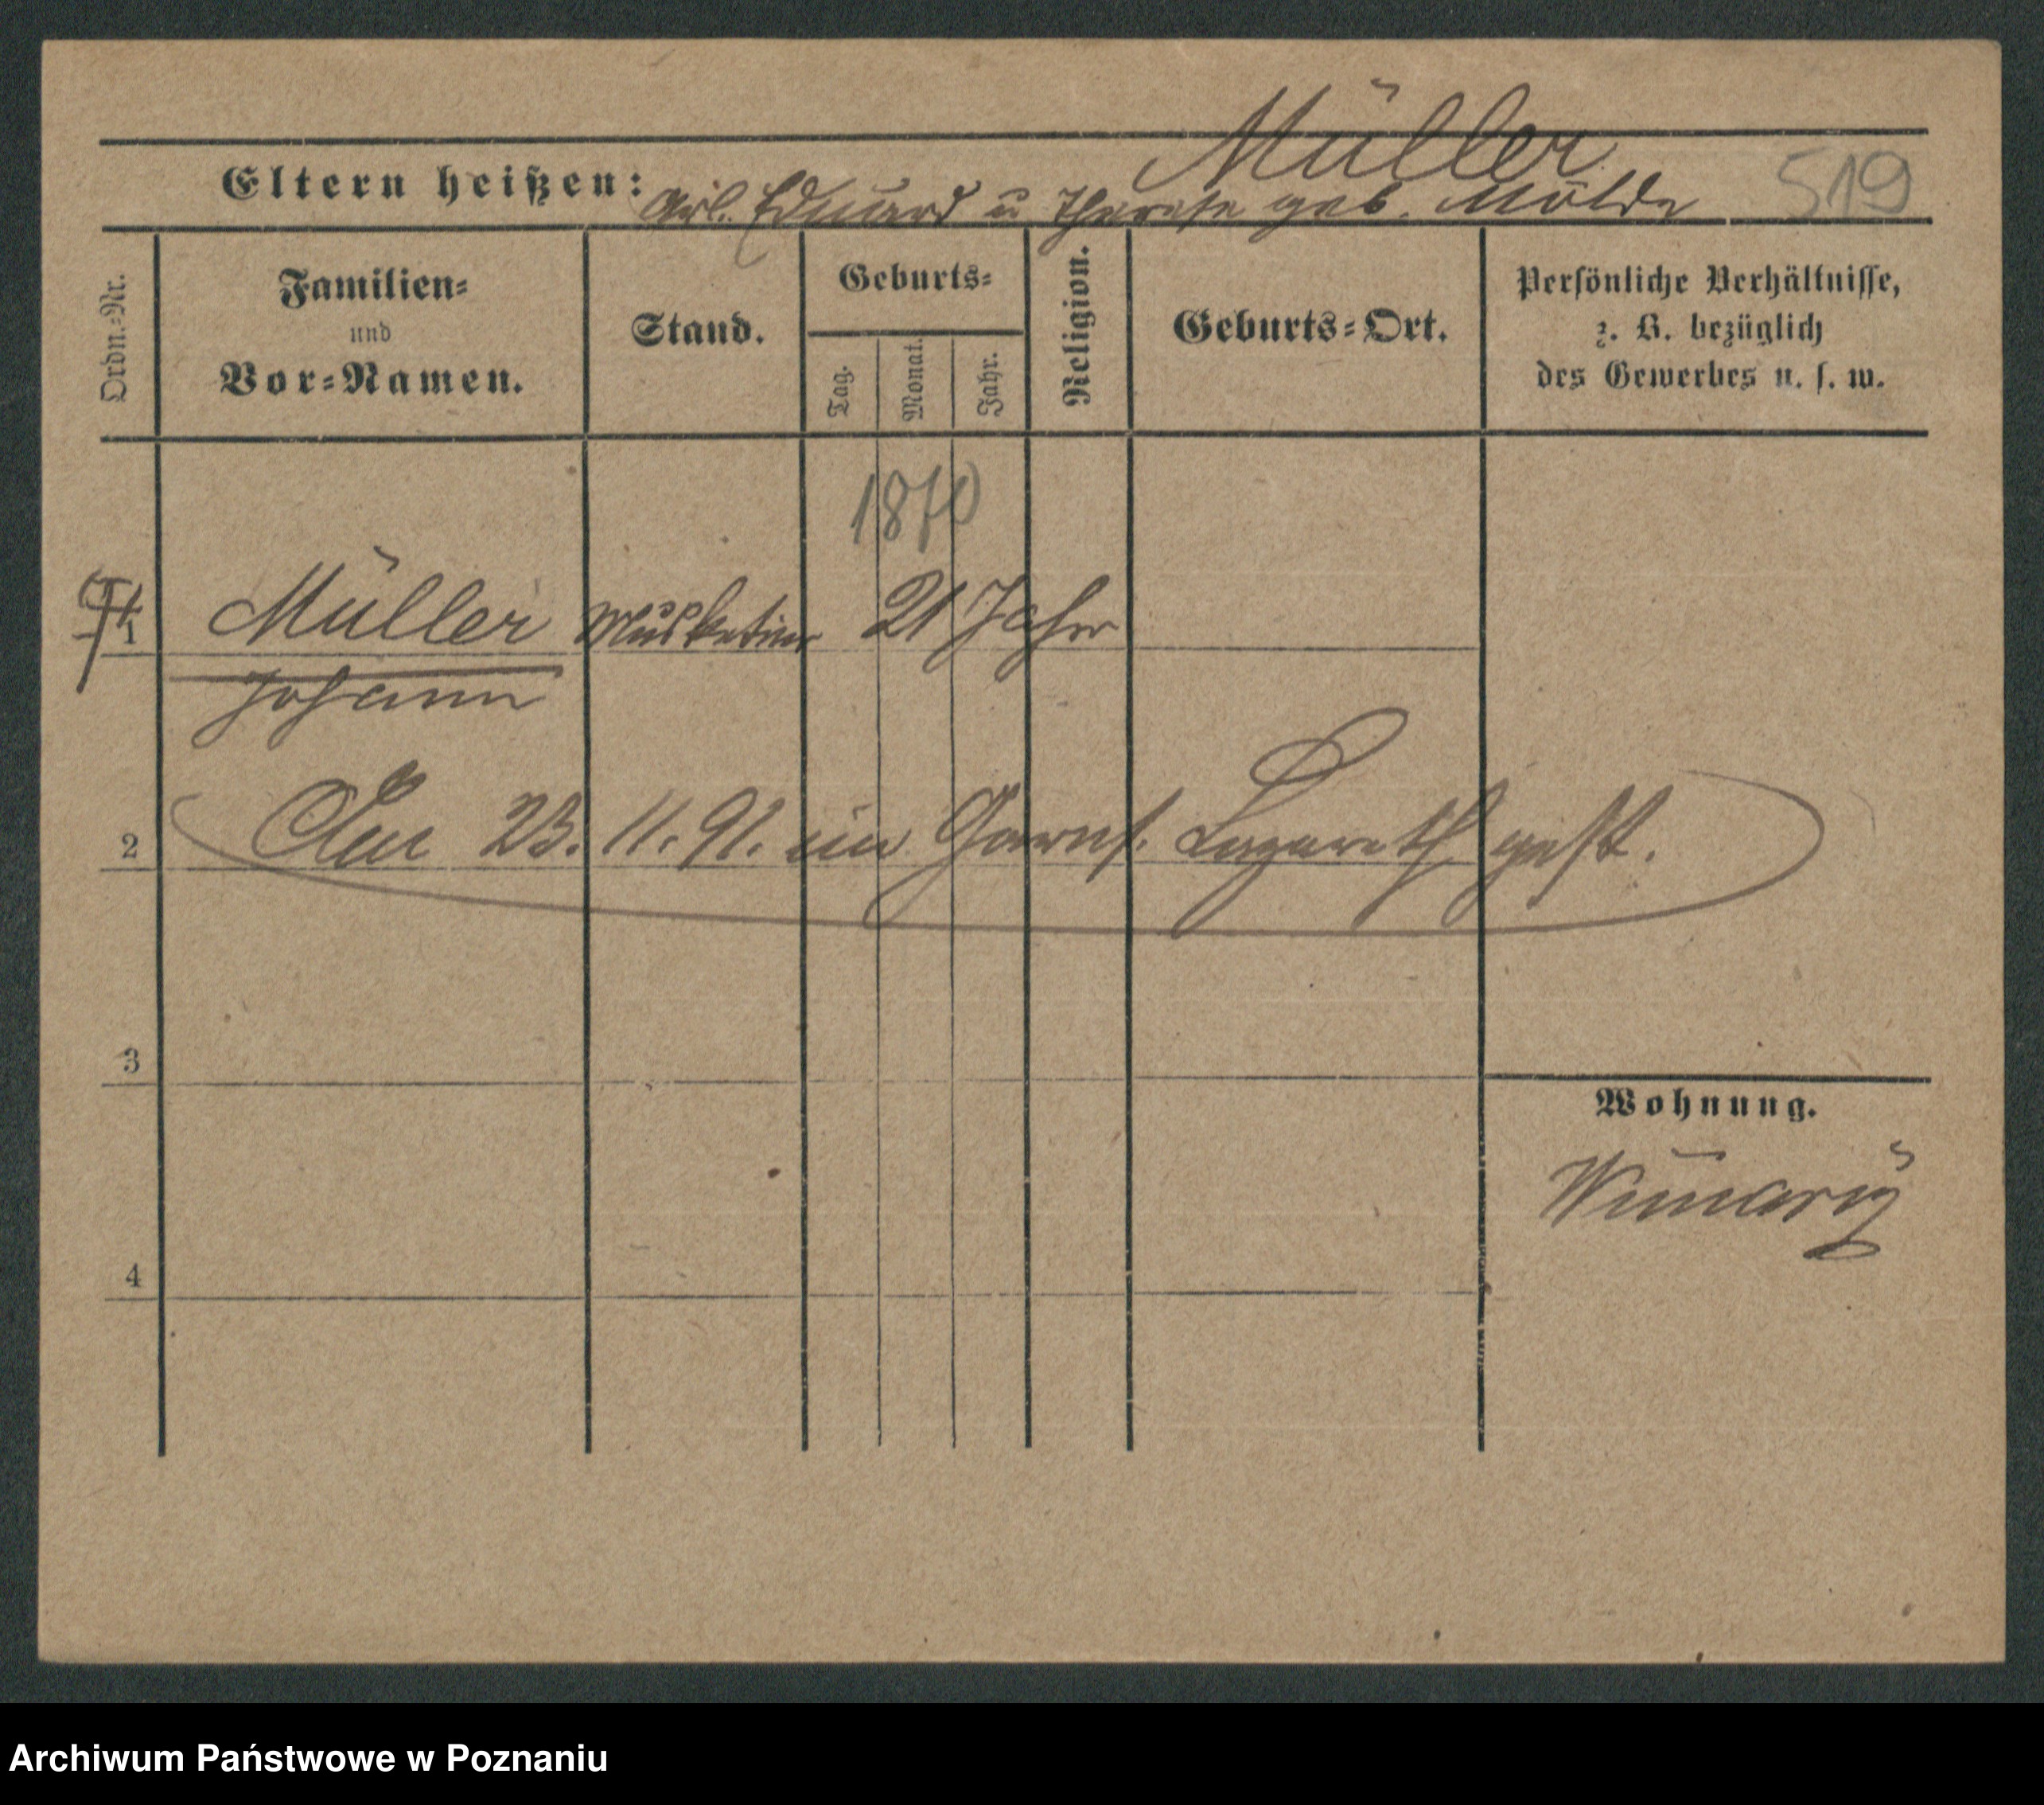 Müller
Eltern heißen: Eduard u Therese geb. Mölde 519
Ordn.-Nr.
Familien-
und
Vor-Namen.
Stand.
Geburts-
Tag.
Monat.
Jahr.
Religion.
Geburts-Ort.
Persönliche Verhältnisse,
z. B. bezüglich
des Gewerbes u. s. w.
1870
1 Müller Musketier 21 Jahr
Johann
2 Am 23. 11. 91. im Garns. Lazareth gest.
3
Wohnung.
4
Archiwum Państwowe w Poznaniu